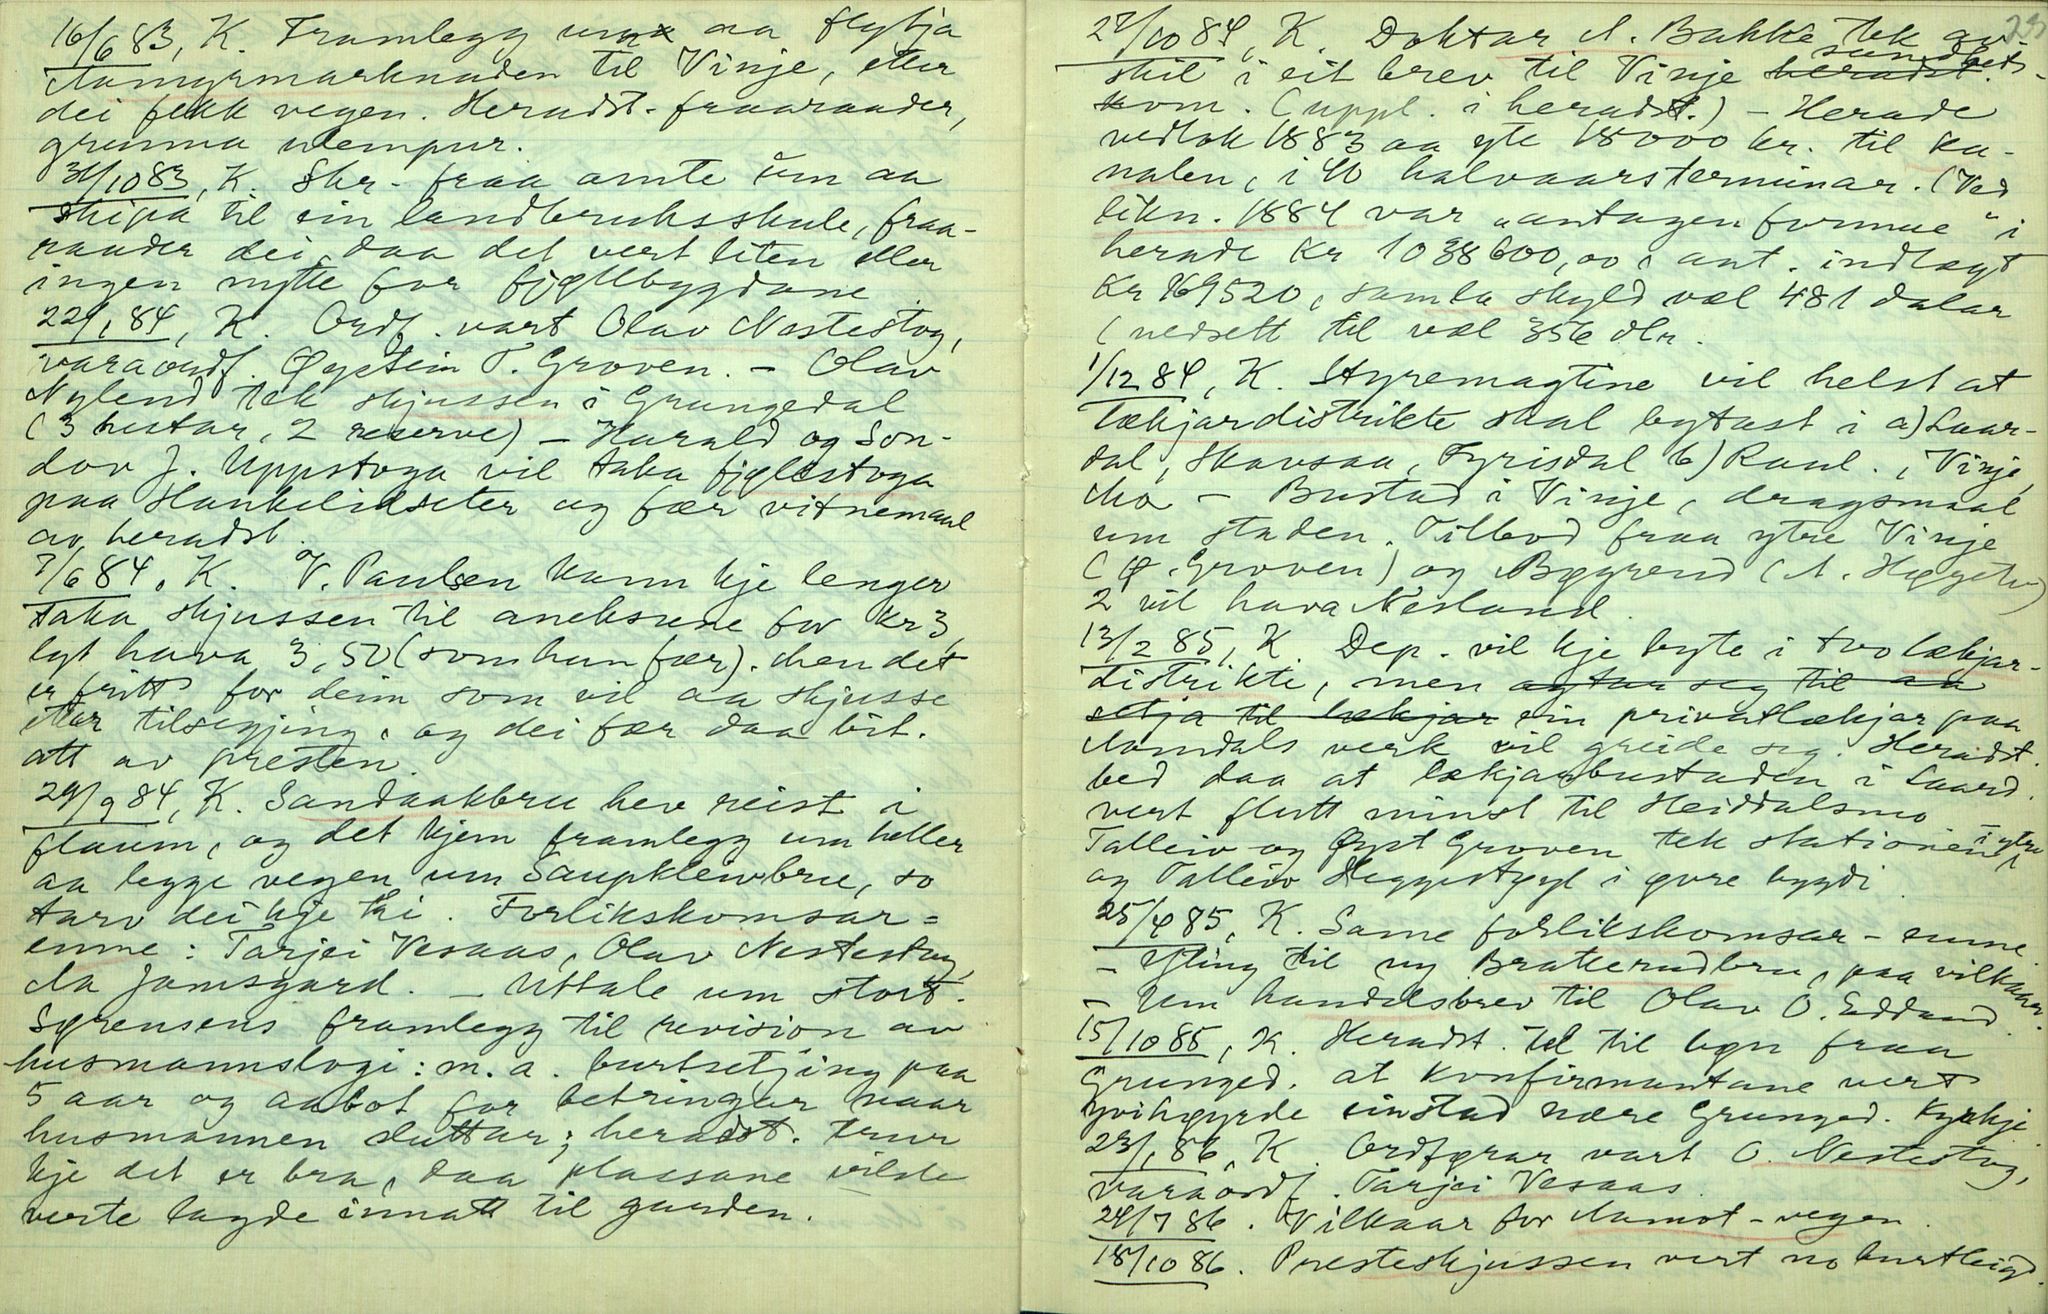 16/6 83, K. Framlegg um aa flytja
Aamyrmarknaden til Vinje, etter
dei fekk vegen. Heradst. fraaraader,
grunna ulempur.
31/10 83, K. Skr. fraa amte um aa
skipa til ein landbruksskule, fraa-
raader dei, daa det vert liten eller
ingen nytte for fjøllbygdane.
22/1 84, K. Ordf. vart Olav Nestestog,
varaordf. Øystein T. Groven. – Olav
Nylend tek skjussen i Grungedal
(3 hestar, 2 reserve) – Harald og Son-
dov J. Uppstoga vil taka fjøllstoga
paa Haukeliseter og fær vitnemaal
av heradst.
7/6 84, K. V. Paulsen kann kje lenger
taka skjussen til aneksene for kr 3,
lyt hava 3,50 (som han fær). Men det
er fritt for deim som vil aa skjusse
etter tilsegjing, og dei fær daa bit.
att av presten.
29/9 84, K. Sandaakbru hev reist i
flaum, og det kjem framlegg um heller
aa leggje vegen um Saupkleivbru, so
tarv dei kje tri. Forlikskomsar-
enne: Tarjei Vesaas, Olav Nestestog,
Aa Jamsgard. – Uttale um stort.
Sørensens framlegg til revisjon av
husmannslogi: m. a. burtsetjing paa
5 aar og aabot for betringar naar
husmannen sluttar; heradst. trur
kje det er bra, daa plassane vilde
verte lagde innatt til garden.
23
27/10 84, K. Doktar A. Bakke tek av-
skil i eit brev til Vinje heradst. sundheds-
kom. (uppl. i heradst.) – Herade
vedtok 1883 aa yte 18000 kr. til ka-
nalen, i 40 halvaarsterminar. (Ved
likn. 1884 var "antagen formue" i
herade kr 1038600,00, ant. indtægt
kr 169520, samla skyld vel 481 dalar
(nedsett til vel 356 dlr.
1/12 84, K. Styremagtine vil helst at
lækjardistrikte skal bytast i a) Laar-
dal, Skavsaa, Fyrisdal b) Raul., Vinje,
Mo – Bustad i Vinje, dragsmaal
um staden. Tilbod fraa ytre Vinje
(Ø. Groven) og Bøgrend (A. Høgetv)
2 vil hava Nesland.
13/2 85, K Dep. vil kje byte i tvo lækjar-
distrikti, men agtar seg til aa
setja til lækjar ein privatlækjar paa
Aamdals verk vil greide seg. Heradst.
bed daa at lækjarbustaden i Laard.
vert flutt minst til Heiddalsmo
Talleiv og Øyst Groven tek stationen i ytre
og Talleiv Heggestøyl i øvre bygdi.
25/4 85, K. Same forlikskomsar-enne.
– Yting til ny Bratterudbru, paa vilkaar.
– Um handelsbrev til Olav O. Edland.
15/10 85, K. Heradst. tek til bøn fraa
Grunged. at konfirmantane vert
yvihøyrde einstad nære Grunged. kyrkje
23/1 86, K. Ordførar vart O. Nestestog,
varaordf. Tarjei Vesaas.
24/7 86. Vilkaar for Aamot-vegen.
18/10 86. Presteskjussen vert no burtleigd.